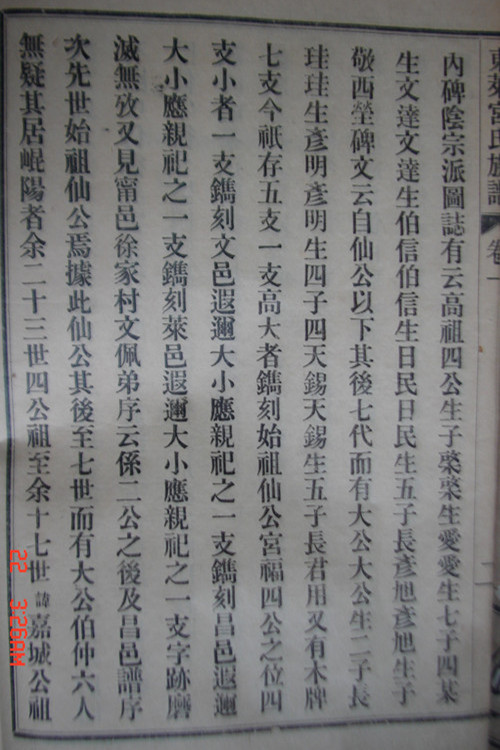 東萊宮氏族譜
卷一
內碑陰宗派圖誌有云高祖四公生子榮榮生愛愛生七子四某
生文達文達生伯信伯信生日民日民生五子長彥旭彥旭生子
敬西塋碑文云自仙公以下其後七代而有大公大公生二子長
珪珪生彥明彥明生四子四天錫天錫生五子長君用又有木牌
七支今祇存五支一支高大者鐫刻始祖仙公宮福四公之位四
支小者一支鐫刻文邑遐邇大小應親祀之一支鐫刻昌邑遐邇
大小應親祀之一支鐫刻萊邑遐邇大小應親祀之一支字跡磨
滅無攷又見甯邑徐家村文佩弟序云係二公之後及昌邑譜序
次先世始祖仙公焉據此仙公其後至七世而有大公伯仲六人
無疑其居崐陽者余二十三世四公祖至余十七世諱嘉城公祖
22 3:26AM